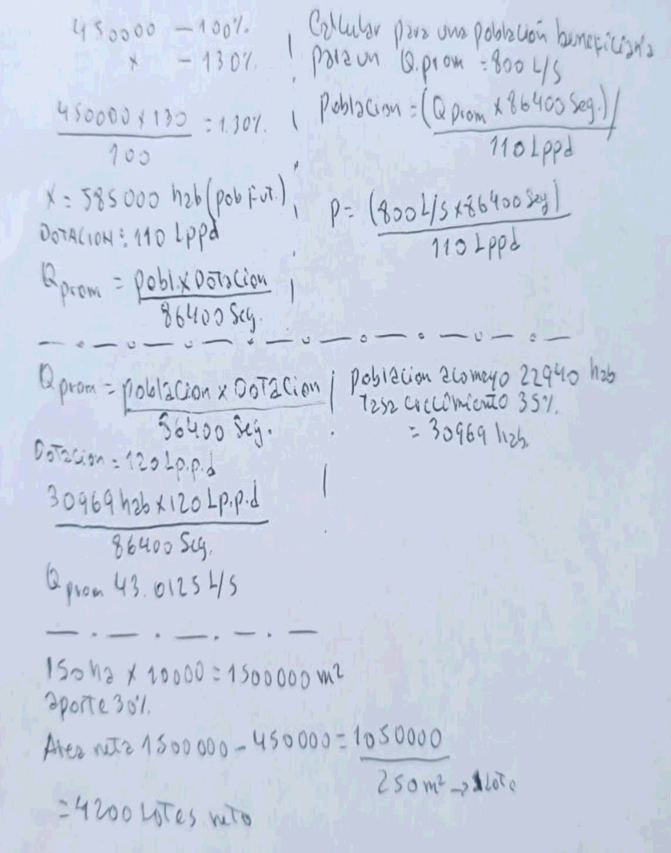 450000 - 100%.
x - 130%.
450000 x 130 = 1.30%.
100
x = 585000 hab (pob Fut.)
DOTACION: 110 Lppd
Qprom = pobl. x Dotacion
86400 Seg.
Calcular para una población beneficiaria
para un Q.prom = 800 L/S
Poblacion = (Qprom x 86400 Seg.)/
110 Lppd
P = (800 L/S x 86400 Seg)
110 Lppd
Qprom = poblacion x DOTACion
86400 Seg.
Dotacion = 120 Lp.p.d
30969 hab x 120 Lp.p.d
86400 Seg.
Qprom 43.0125 L/S
poblacion acomayo 22940 hab
Tasa crecimiento 35%.
= 30969 hab.
150 ha x 10000 = 1500000 m²
aporte 30%.
Area neta 1500000 - 450000 = 1050000
250 m² → 1 Lote
= 4200 Lotes neto